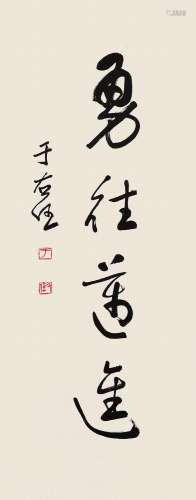 勇往邁進
于右任